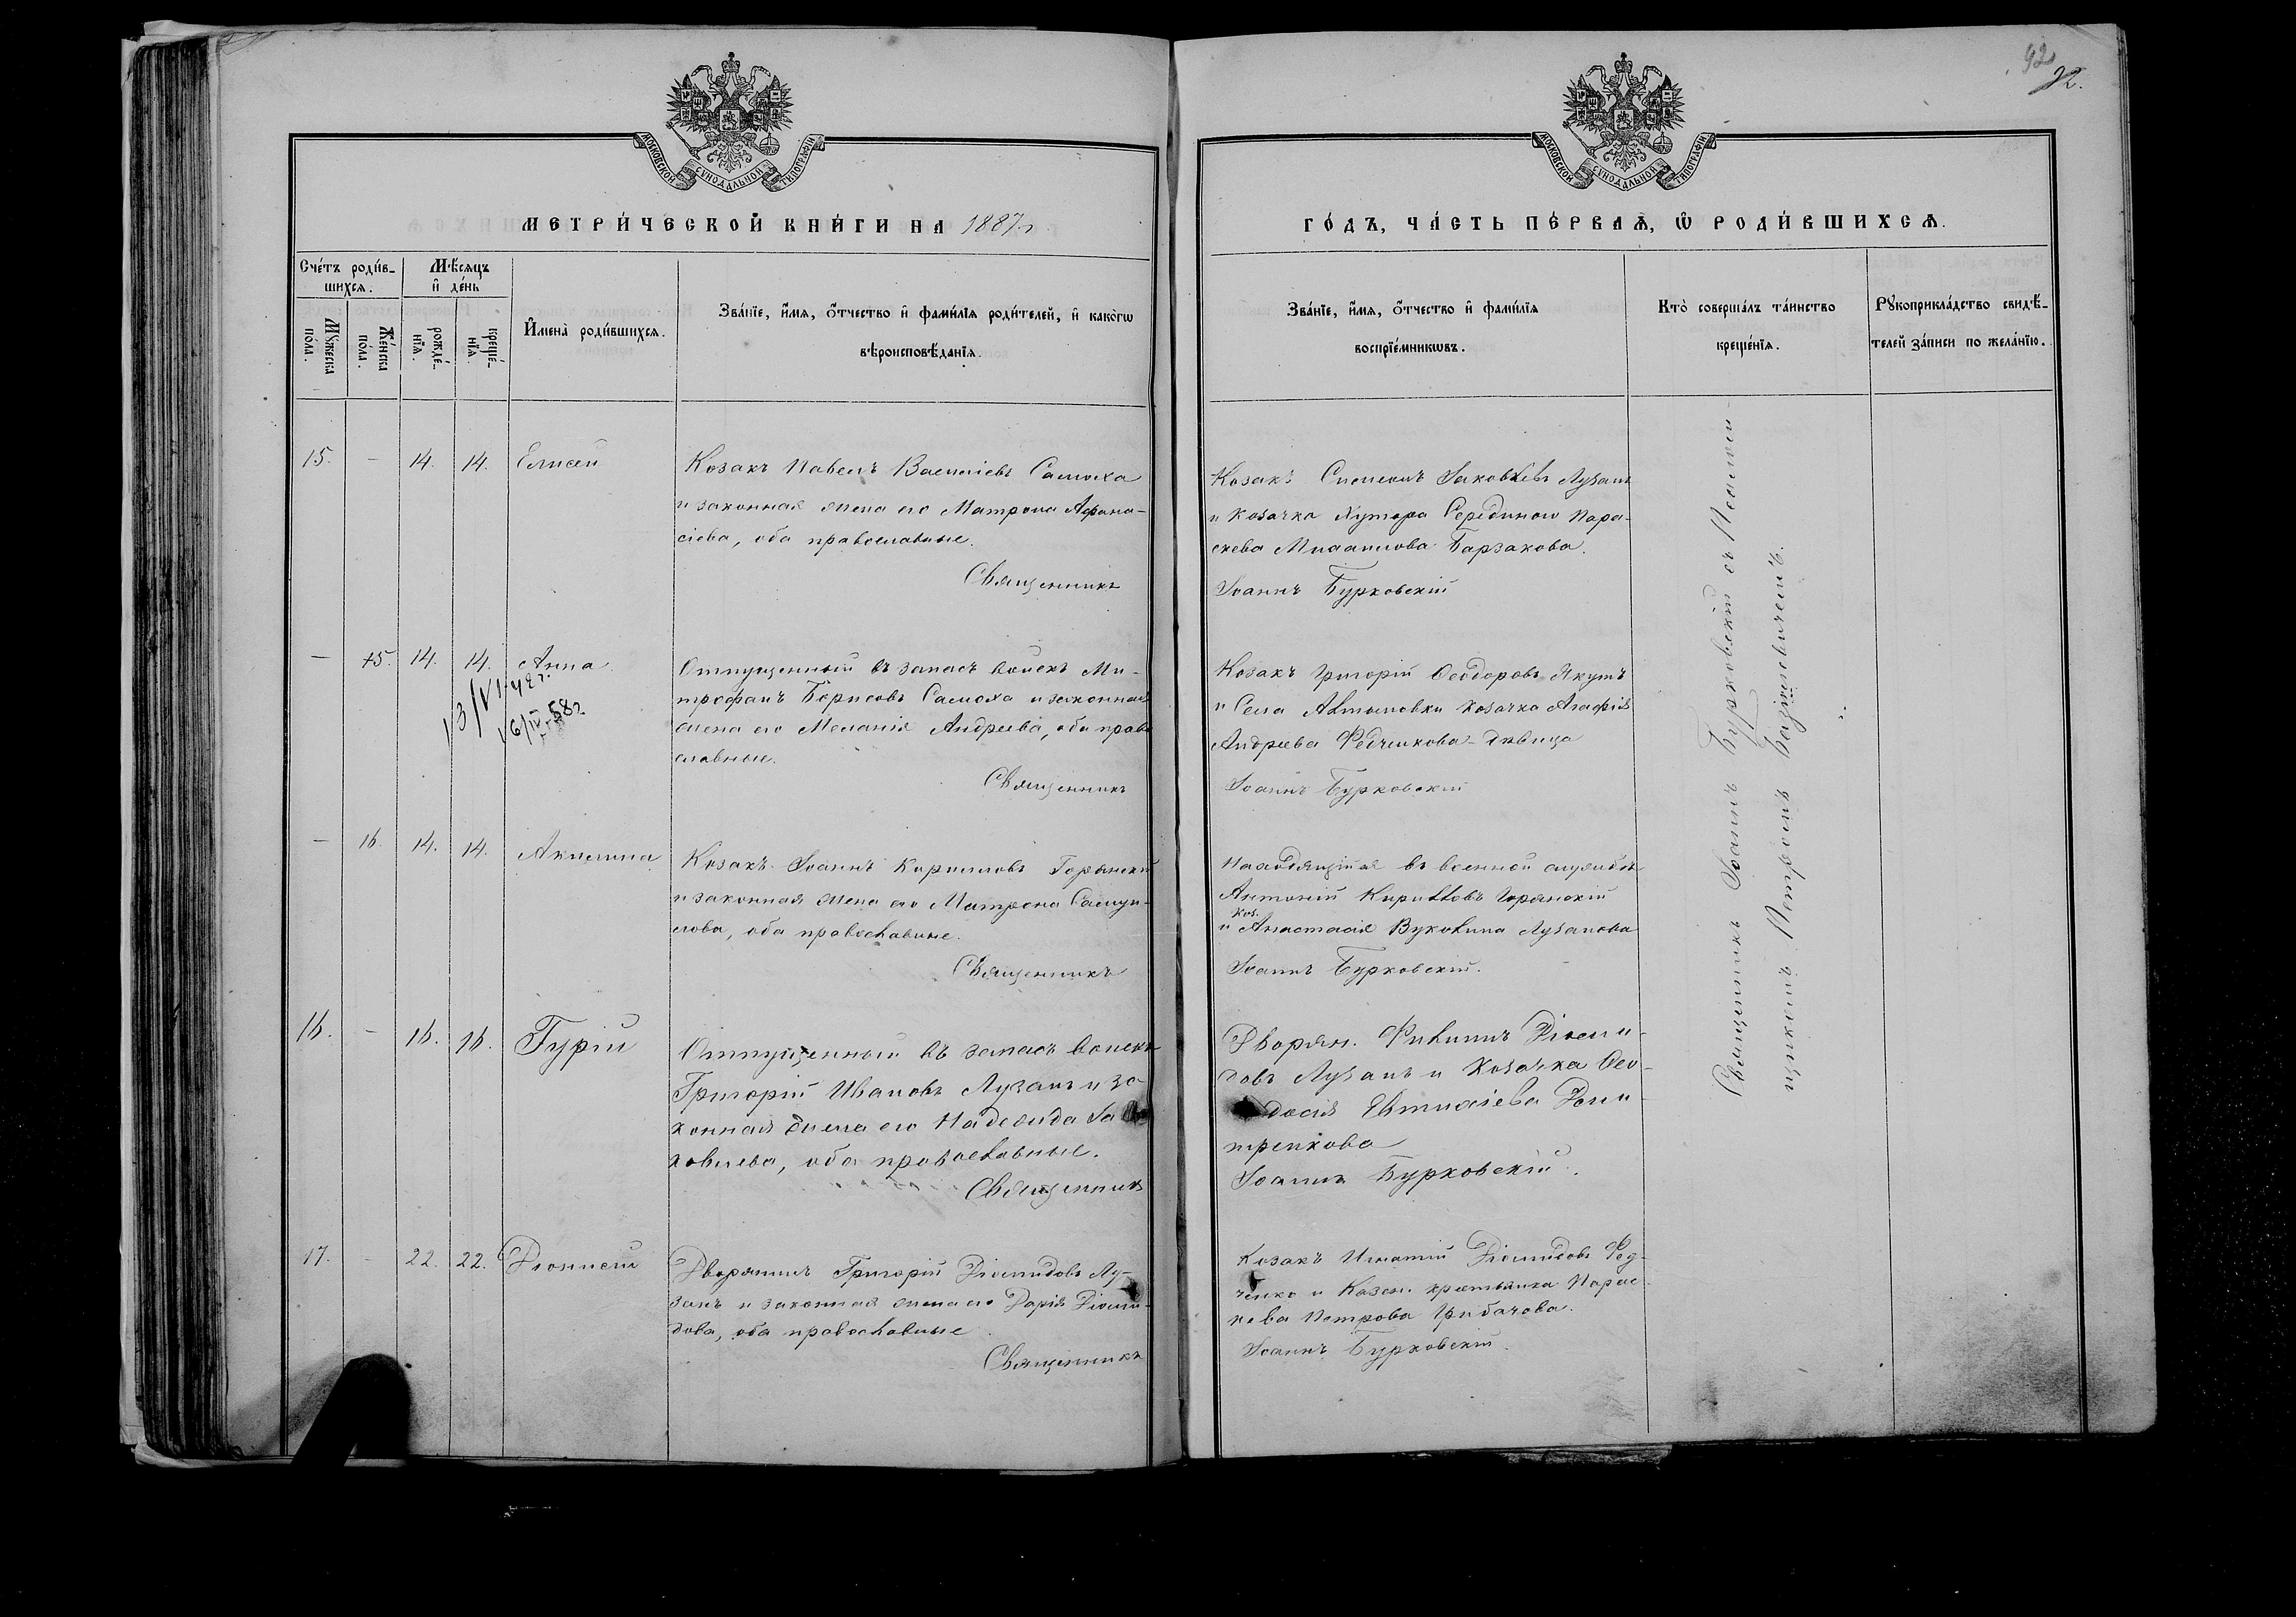 92
92.
МОСКОВСКОЙ СѴНОДАЛЬНОЙ ТИПОГРАФІИ
МОСКОВСКОЙ СѴНОДАЛЬНОЙ ТИПОГРАФІИ
МЕТРИ́ЧЕСКОЙ КНИ́ГИ НА 1887 г
ГО́ДЪ, ЧА́СТЬ ПЕ́РВАѦ, Ѽ РОДИ́ВШИХСѦ.
Сче́тъ роди́в-
шихсѧ.
Мѣ́сѧцъ
и҆ де́нь
Мꙋ́жеска
по́ла.
Же́нска
по́ла.
рожде́-
нїѧ.
креще́-
нїѧ.
И҆мена̀ роди́вшихсѧ.
Зва́нїе, и҆́мѧ, ѻ҆́тчество и҆ фами́лїѧ роди́телей, и҆ како́гѡ
вѣроисповѣ́данїѧ.
Зва́нїе, и҆́мѧ, ѻ҆́тчество и҆ фами́лїѧ
воспрїе́мникѡвъ.
Кто̀ соверша́лъ та́инство
креще́нїѧ.
Рꙋкоприкла́дство свидѣ́-
телей за́писи по жела́нїю.
15. - 14. 14. Елисей
Козакъ Павелъ Василіевъ Самоха
и законная жена его Матрона Афана-
сіева, оба православные.
Священникъ
Козакъ Симеонъ Іаковлевъ Лузанъ
и козачка Хутора Середином Пара-
скева Михаилова Барзакова.
Іоаннъ Бурковскій
- 15. 14. 14. Анна
13/VI 42 г.
16/IV-58 г
Отпущенный въ запасъ войскъ Ми-
трофанъ Борисовъ Самоха и законная
жена его Меланія Андреева, оба право
славные.
Священникъ
Козакъ Григорій Ѳеодоровъ Якутъ
и Села Автыновки козачка Агафія
Андреева Федченкова - дѣвица
Іоаннъ Бурковскій
- 16. 14. 14. Акилина
Козакъ Іоаннъ Кирилловъ Горянскій
и законная жена его Матрона Самуи-
лова, оба православные.
Священникъ
Находящійся въ военной службѣ
Антоній Кирилловъ Горянскій
коз.
и Анастасія Вуколина Лузанова
Іоаннъ Бурковскій.
16. - 16. 16. Гурій
Отпущенный въ запасъ войскъ
Григорій Ивановъ Лузанъ и за
конная жена его Надежда Іа
ковлева, оба православные.
Священникъ
Дворян. Филиппъ Діоми-
довъ Лузанъ и Козачка Ѳео-
досія Евтихіева Дми-
тренкова
Іоаннъ Бурковскій.
17. - 22. 22. Діонисій
Дворянинъ Григорій Діомидовъ Лу-
занъ и законная жена его Дарія Діоми-
дова, оба православные.
Священникъ
Козакъ Игнатій Діомидовъ Фед-
ченко и Казен. крестьянка Парас-
кева Петрова Грибачова.
Іоаннъ Бурковскій.
Священникъ Іоаннъ Бурковскій съ Псаломи-
щикомъ Петромъ